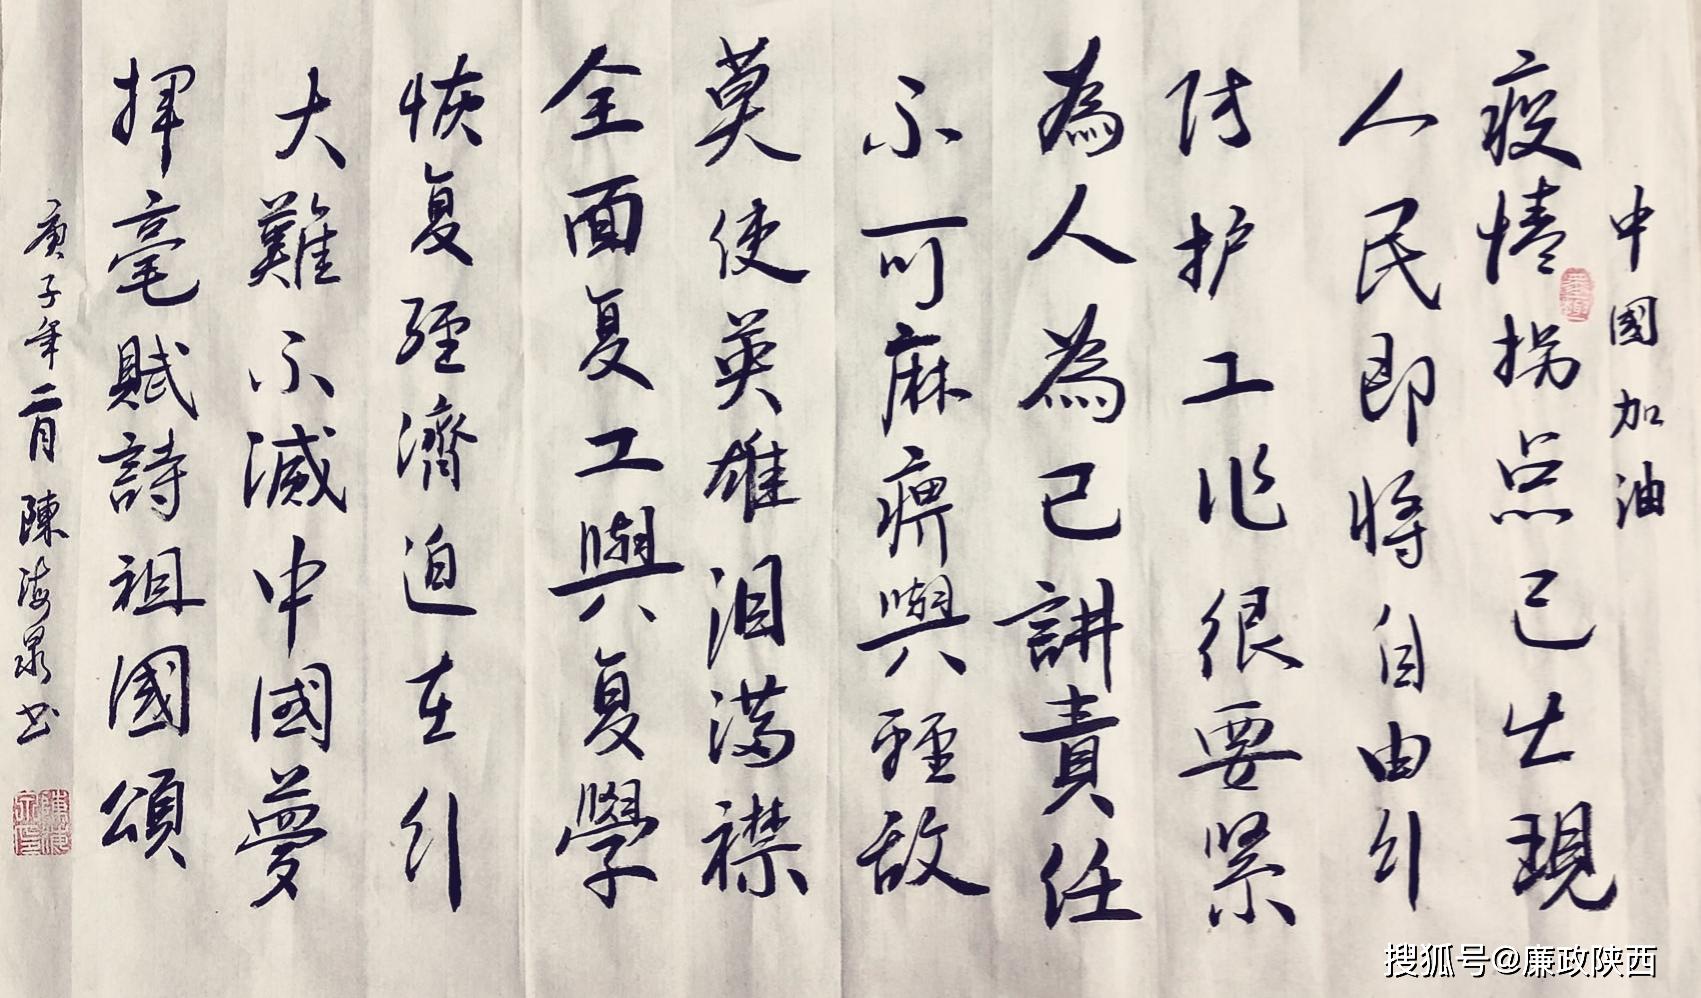 中國加油
疫情拐点已出現
人民即将自由行
防护工作很要紧
為人為己講責任
不可麻痹與轻敌
莫使英雄泪满襟
全面复工與复學
恢复经濟迫在行
大難不滅中國夢
揮毫賦詩祖國頌
庚子年二月 陳海泉书
搜狐号@廉政陕西